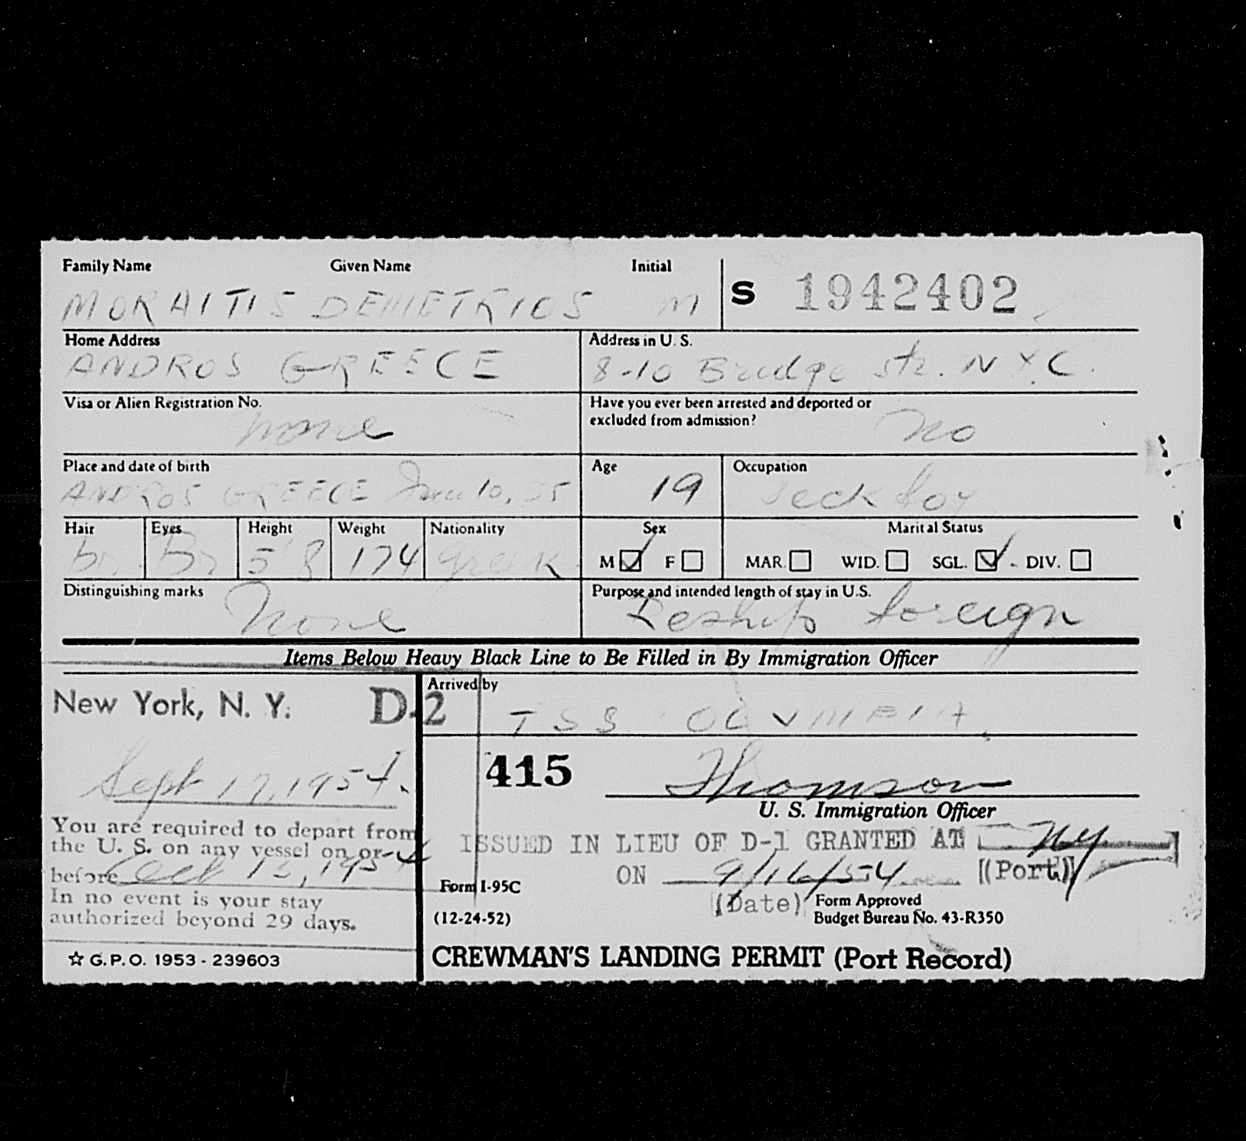 Family Name Given Name Initial
MORAITIS DEMETRIOS M S 1942402
Home Address Address in U. S.
ANDROS GREECE 8-10 Bridge str. N.Y.C.
Visa or Alien Registration No. Have you ever been arrested and deported or
excluded from admission?
none no
Place and date of birth Age Occupation
ANDROS GREECE 10, 35 19 deck boy
Hair Eyes Height Weight Nationality Sex Marital Status
br Br 5 8 174 greek M F MAR. WID. SGL. DIV.
Distinguishing marks Purpose and intended length of stay in U.S.
none Reship foreign
Items Below Heavy Black Line to Be Filled in By Immigration Officer
New York, N. Y. D-2 Arrived by
TSS OLYMPIA
Sept 17, 1954. 415 Thomson
U. S. Immigration Officer
You are required to depart from
the U. S. on any vessel on or
before Oct 15, 1954
In no event is your stay
authorized beyond 29 days.
ISSUED IN LIEU OF D-1 GRANTED AT NY
ON 9/16/54 (Port)
(Date)
Form I-95C Form Approved
(12-24-52) Budget Bureau No. 43-R350
☆ G.P.O. 1953 - 239603 CREWMAN'S LANDING PERMIT (Port Record)